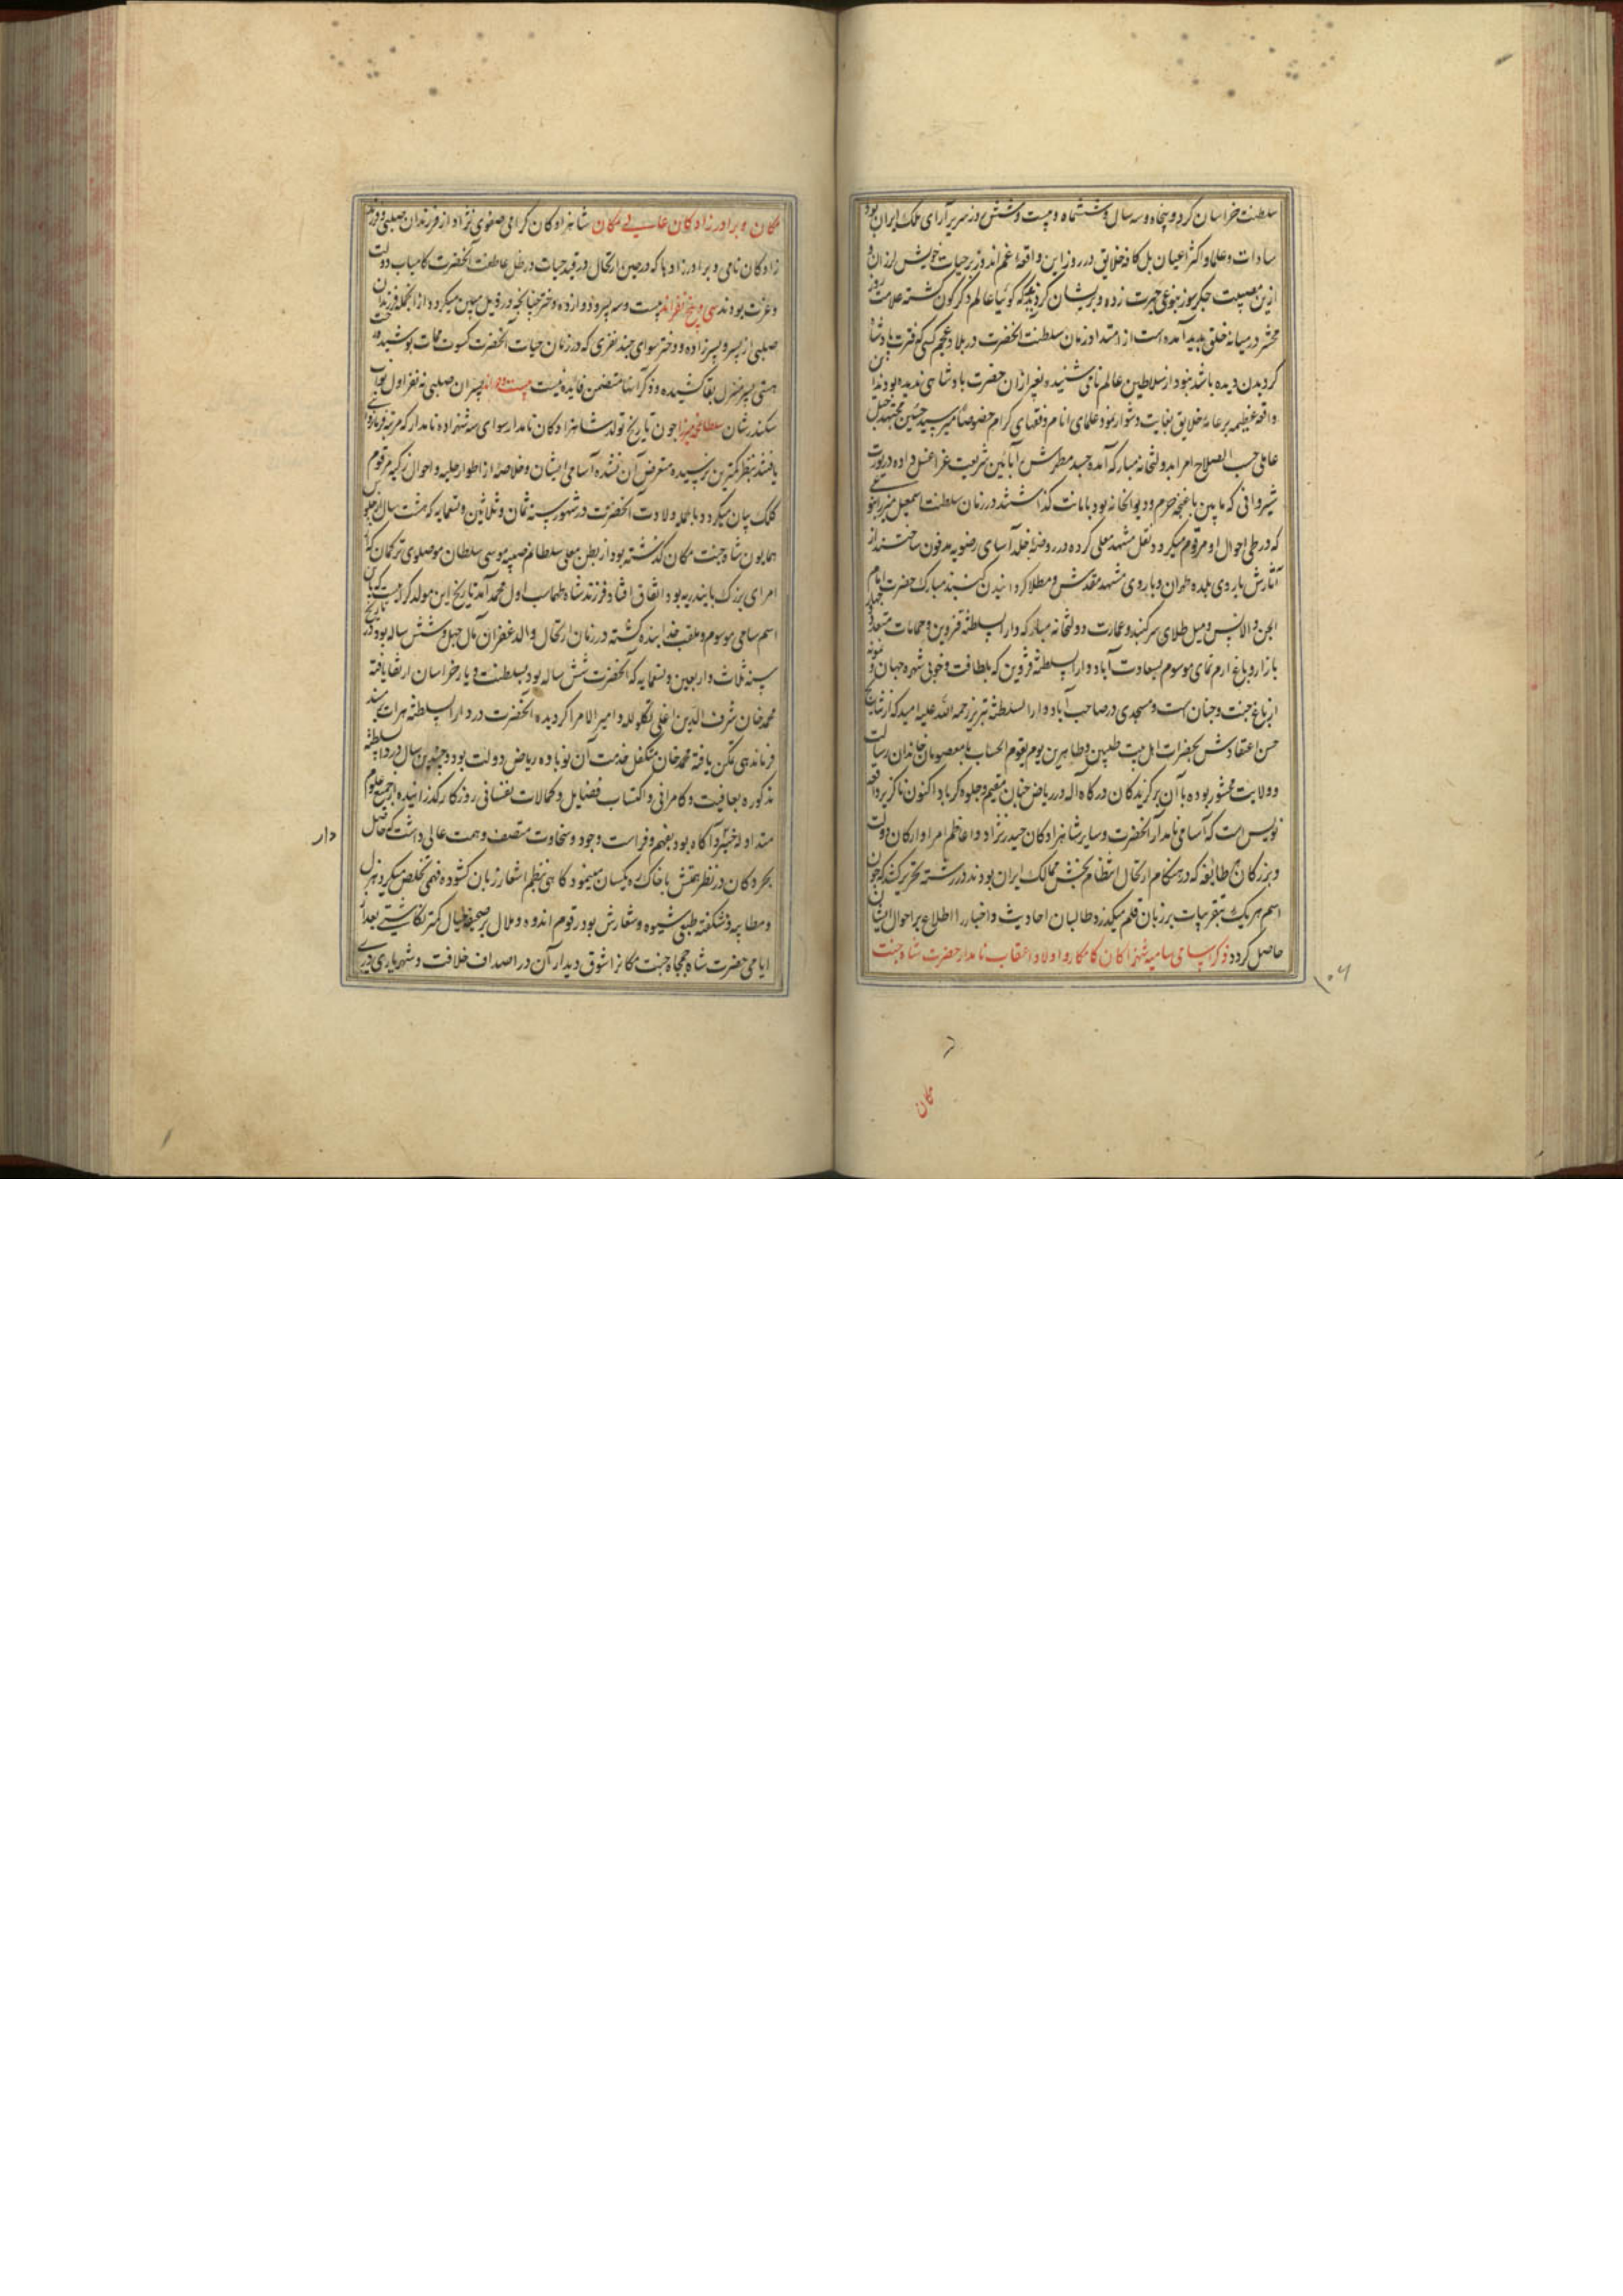 سلطنت خراسان کرد و پنجاه و سه سال و ششماه و بیست و شش روز سریر آرای ملک ایران بود
سادات و علما و اکثر اعیان بل کافه خلایق در روز این واقعه غم اندوز بر حیات خویش لرزان و
ازین مصیبت جگرسوز بنوعی حیرت زده و پریشان گردیدند که گوئیا عالم دگرگون گشته علامت روز
محشر در میانه خلق پدید آمده است از امتداد زمان سلطنت آنحضرت در بلاد عجم کسی که فترت پادشاه
گردیدن دیده باشد نبود از سلاطین عالم نامی شنیده بغیر از آن حضرت پادشاهی ندیده بودند این
واقعه عظیمه بر عامه خلایق بغایت دشوار نمود علمای انام و فقهای کرام خصوصا میر سید حسین مجتهد جبل
عاملی حسب الصلاح امرا بدولتخانه مبارکه آمده جسد مطهرش بآیین شریعت غرا غسل داده در یورت
شیروانی که مابین باغچه حرم و دیوانخانه بود بامانت گذاشتند در زمان سلطنت اسمعیل میرزا بنوعی
که در طی احوال او مرقوم میگردد نقل مشهد معلی کرده در روضه خلد آسای رضویه مدفون ساختند از
آثارش باروی بلده طهران و باروی مشهد مقدس و مطلا گردانیدن گنبد مبارک حضرت امام
الجن و الانس و میل طلای سر گنبد و عمارت دولتخانه مبارکه دار السلطنه قزوین و حمامات متعدد و چهار
بازار و باغ ارم نمای موسوم بسعادت آباد دار السلطنه قزوین که بلطافت و خوبی شهره جهان و نمونه
از باغ جنت و جنان است و مسجدی در صاحب آباد دار السلطنه تبریز رحمه الله علیه امید که از نتایج
حسن اعتقادش بحضرات اهل بیت طیبین و طاهرین یوم یقوم الحساب با معصومان خاندان رسالت
و ولایت محشور بوده با آن برگزیدگان درگاه اله در ریاض جنان مقیم و جلوه گر باد اکنون ناگزیر واقعه
نویس است که اسامی نامدار آنحضرت و سایر شاهزادگان حیدر نژاد و اعاظم امرا و ارکان دولت
و بزرگان هر طایفه که در هنگام ارتحال انتظام بخش ممالک ایران بودند در رشته تحریر کشد که چون
اسم هر یک بتقریبات بر زبان قلم میگذرد طالبان احادیث و اخبار را اطلاع بر احوال ایشان
حاصل گردد ذکر اسامی سامیه شهزادگان کامکار و اولاد و اعقاب نامدار حضرت شاه جنت
۱۰۶
مکان
مکان و برادرزادگان عالی مکان شاهزادگان گرامی صفوی نژاد از فرزندان صلبی و فرزند
زادگان نامی و برادرزادها که در حین ارتحال در قید حیات در ظل عاطفت آنحضرت کامیاب دولت
و عزت بودند سی و پنج نفراند بیست و سه پسر و دوازده دختر چنانچه در ذیل مبین میگردد از آنجمله فرزندان
صلبی از پسر و پسرزاده و دختر سوای چند نفری که در زمان حیات آنحضرت کسوت ممات پوشیده رخت
هستی بسر منزل بقا کشیده و ذکر آنها متضمن فایده نیست پسران صلبی نه نفر اول نواب
سکندر شان سلطان محمد میرزا چون تاریخ تولد شاهزادگان نامدار سوای سه شهزاده نامدار که مرتبه فرمانروائی
یافتند بنظر کمترین نرسیده متعرض آن نشده اسامی ایشان و خلاصه از اطوار جلیه و احوال زکیه مرقوم
کلک بیان میگردد بالجمله ولادت آنحضرت در شهور سنه ثمان و ثلاثین و تسعمایه که هشت سال از جلوس
همایون شاه جنت مکان گذشته بود از بطن معلی سلطانم صبیه موسی سلطان موصلوی ترکمان که از
امرای بزرگ بایندریه بود اتفاق افتاد فرزند شاه طهماسب اول محمد آمد تاریخ این مولد گرامیست که باین
اسم سامی موسوم و ملقب خدابنده گشته در زمان ارتحال والد غفران مآل چهل و شش ساله بود در تاریخ
سنه ثلاث و اربعین و تسعمایه که آنحضرت شش ساله بود بسلطنت دیار خراسان ارتقا یافته
محمد خان شرف الدین اغلی تکلو لله و امیر الامرا گردیده آنحضرت در دار السلطنه هرات بمسند
فرماندهی تمکن یافته محمد خان متکفل خدمت آن نوباوه ریاض دولت بود و چندین سال در دار السلطنه
مذکوره بعافیت و کامرانی و اکتساب فضایل و کمالات نفسانی روزگار گذرانیده از جمیع علوم
متداوله خبیر و آگاه بود بفهم و فراست و جود و سخاوت متصف و همت عالی داشت که حاصل
دار
بحر و کان در نظر همتش با خاک ره یکسان مینمود گاهی بنظم اشعار زبان گشوده فهمی تخلص میکرد هزل
و مطایبه و شکفته طبعی شیوه و شعارش بود رقوم اندوه و ملال بر صحیفه خیال کمتر نگاشتی بعد از
ایامی حضرت شاه جمجاه جنت مکانرا شوق دیدار آن در اصداف خلافت و شهریاری دری